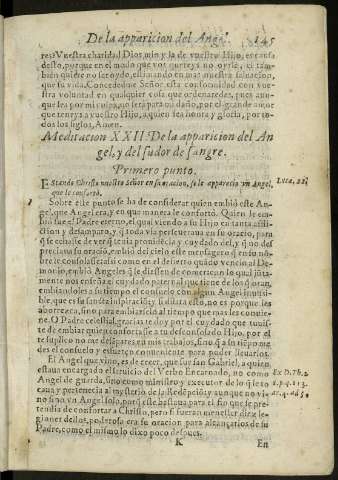 De la apparicion del Angel. 145
res? Vuestra charidad Dios mio y la de vuestro Hijo, es causa
desto, porque en el modo que vos quereys no oyrle, el tam-
bien quiere no ser oydo, estimando en mas nuestra saluacion,
que su vida. Concededme Señor esta conformidad con vues-
tra voluntad en qualquier cosa que ordenaredes, pues aun-
que sea por mi culpa, no será para mi daño, por el grande amor
que teneys a vuestro Hijo, a quien sea honra y gloria, por to-
dos los siglos, Amen.
Meditacion XXII. De la apparicion del An
gel, y del sudor de sangre.
Primero punto.
Estando Christo nuestro Señor en su oracion, se le aparecio vn Angel, Luca. 22.
que le confortó.
Sobre este punto se ha de considerar quien embió este An-
gel, que Angel era, y en que manera le confortó. Quien le em-
bio fue el Padre eterno, el qual viendo a su Hijo en tanta afli-
ction y desamparo, y que toda via perseueraua en su oracion, para
que se echasse de ver que tenia prouidencia y cuydado del, y que no des
preciaua su oració, embió del cielo este mensagero que en su nõ-
bre le consolasse: assi como en el desierto quãdo vencio al De-
monio, embió Angeles que le diessen de comer: en lo qual jũta-
mente nos enseña el cuydado paternal que tiene de los que oran,
embiandoles a su tiempo el consuelo con algun Angel inuisi-
ble, que es su santa inspiracion, y si dilata esto, no es porque los
aborrezca, sino para embiarselo al tiempo que mas les conuie-
ne. O Padre celestial, gracias te doy por el cuydado que tuuis-
te de embiar quien confortasse a tu desconsolado Hijo, por el
te suplico no me desampares en mis trabajos, sino que a su tiẽpo me
des el consuelo y esfuerço conueniente para poder lleuarlos.
El Angel que vino, es de creer, que fue san Gabriel, a quien
estaua encargado el seruicio del Verbo Encarnado, no como Ex D. Th. 2
Angel de guarda, sino como ministro y executor de lo que to 2. p. q. 113.
caua y pertenecia al mysterio de la Redẽpciõ, y aunque no vi- ar. 4. ad 1.
no sino vn Angel solo, porque este bastaua para el fin que se pre-
tendia de confortar a Christo, pero si fueran menester diez le-
giones dellos, poderosa era su oracion para alcançarlos de su
Padre, como el mismo lo dixo poco despues.
K En